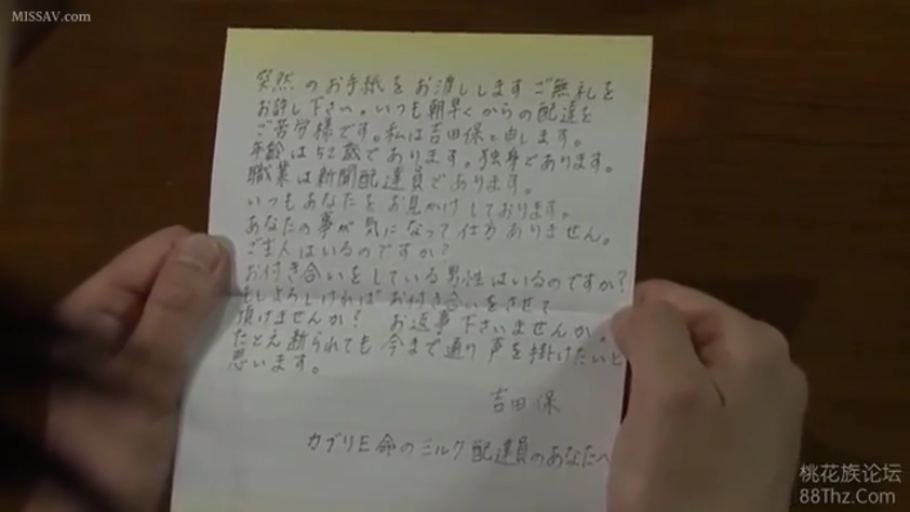 MISSAV.com
突然のお手紙をお渡ししますご無礼を
お許し下さい。いつも朝早くからの配達を
ご苦労様です。私は吉田保と申します。
年齢は52歳であります。独身であります。
職業は新聞配達員であります。
いつもあなたをお見かけしております。
あなたの事が気になって仕方ありません。
ご主人はいるのですか?
お付き合いをしている男性はいるのですか?
もしよろしければお付き合いをさせて
頂けませんか? お返事下さいませんか。
たとえ断られても今まで通り声を掛けたいと
思います。
吉田保
カブリE命のミルク配達員のあなたへ
桃花族论坛
88Thz.Com